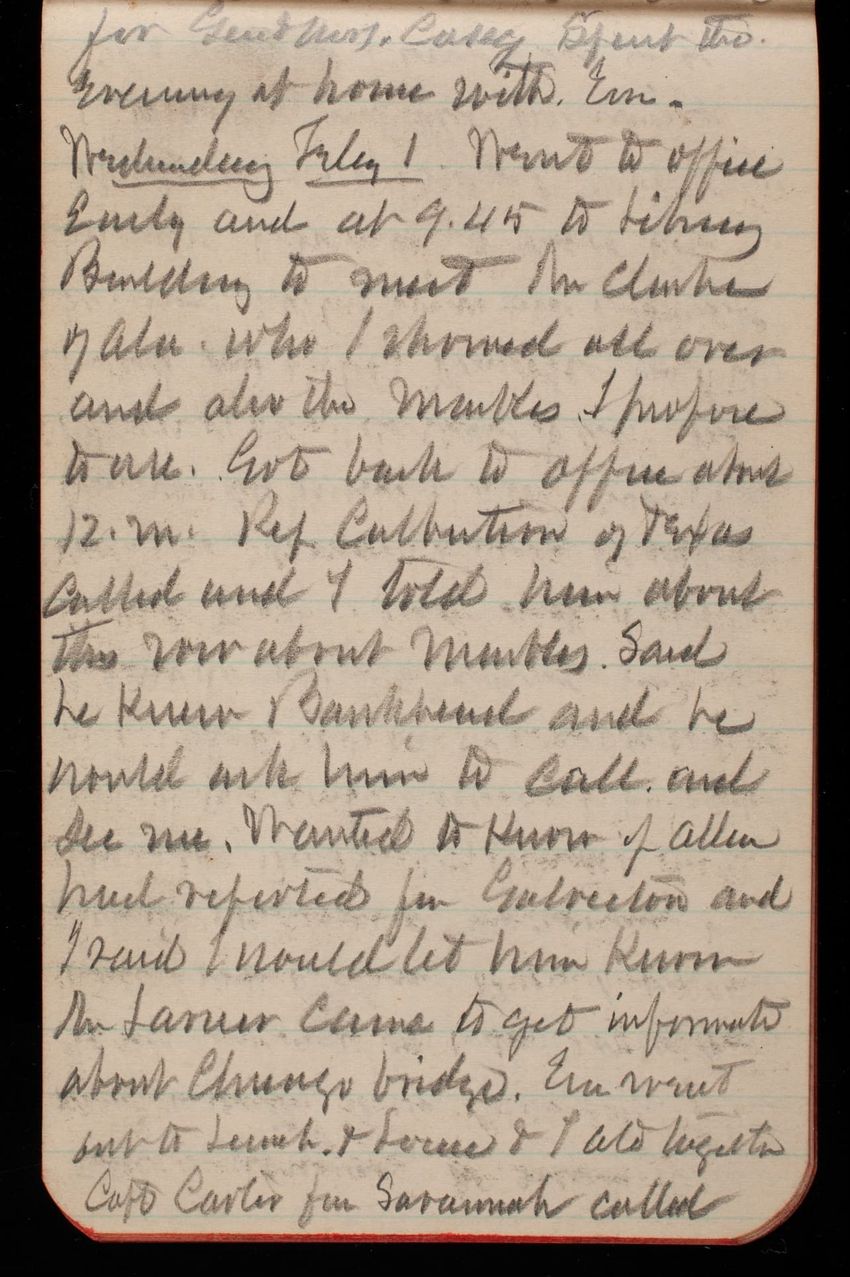 for Genl & Mrs. Casey Spent the
Evening at home with Em.
Wednesday Feby 1 Went to office
Early and at 9.45 to Library
Building to meet Mr Clarke
of Ala. who I showed all over
and also the Marbles I propose
to use. Got back to office about
12.m. Rep Culberson of Texas
Called and I told him about
the row about Marbles. Said
he Knew Bankhead and he
would ask him to call and
see me. Wanted to Know if Allen
had reported for Galveston and
I said I would let him Know
Mr came to get informate
about Chicago bridge. Em went
out to Lunch. & & I ate together
Capt Carter fm Savannah called